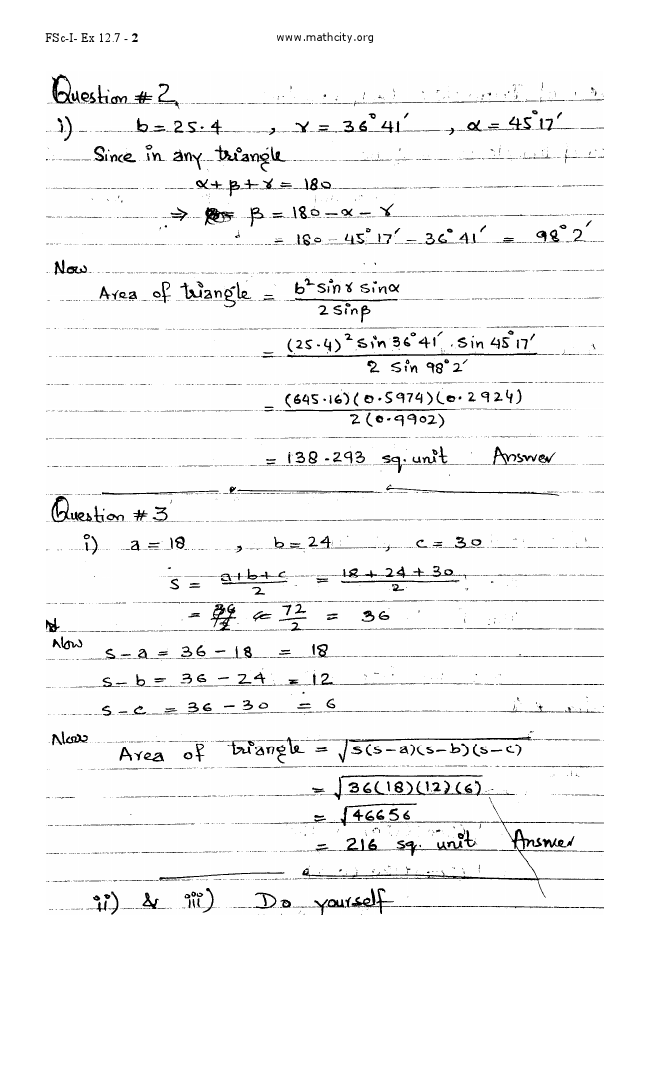 FSc-I- Ex 12.7 - 2
www.mathcity.org
Question # 2
i) b = 25.4 , γ = 36° 41′ , α = 45° 17′
Since in any triangle
α + β + γ = 180
⇒ β = 180 − α − γ
= 180 − 45° 17′ − 36° 41′ = 98° 2′
Now
Area of triangle = b² sin γ sin α / 2 sin β
= (25.4)² sin 36° 41′ . sin 45° 17′ / 2 sin 98° 2′
= (645.16)(0.5974)(0.2924) / 2(0.9902)
= 138.293 sq. unit Answer
Question # 3
i) a = 18 , b = 24 , c = 30
s = a+b+c / 2 = 18 + 24 + 30 / 2
= 36/2 = 72/2 = 36
Now
s − a = 36 − 18 = 18
s − b = 36 − 24 = 12
s − c = 36 − 30 = 6
Now
Area of triangle = √s(s−a)(s−b)(s−c)
= √36(18)(12)(6)
= √46656
= 216 sq. unit Answer
ii) & iii) Do yourself